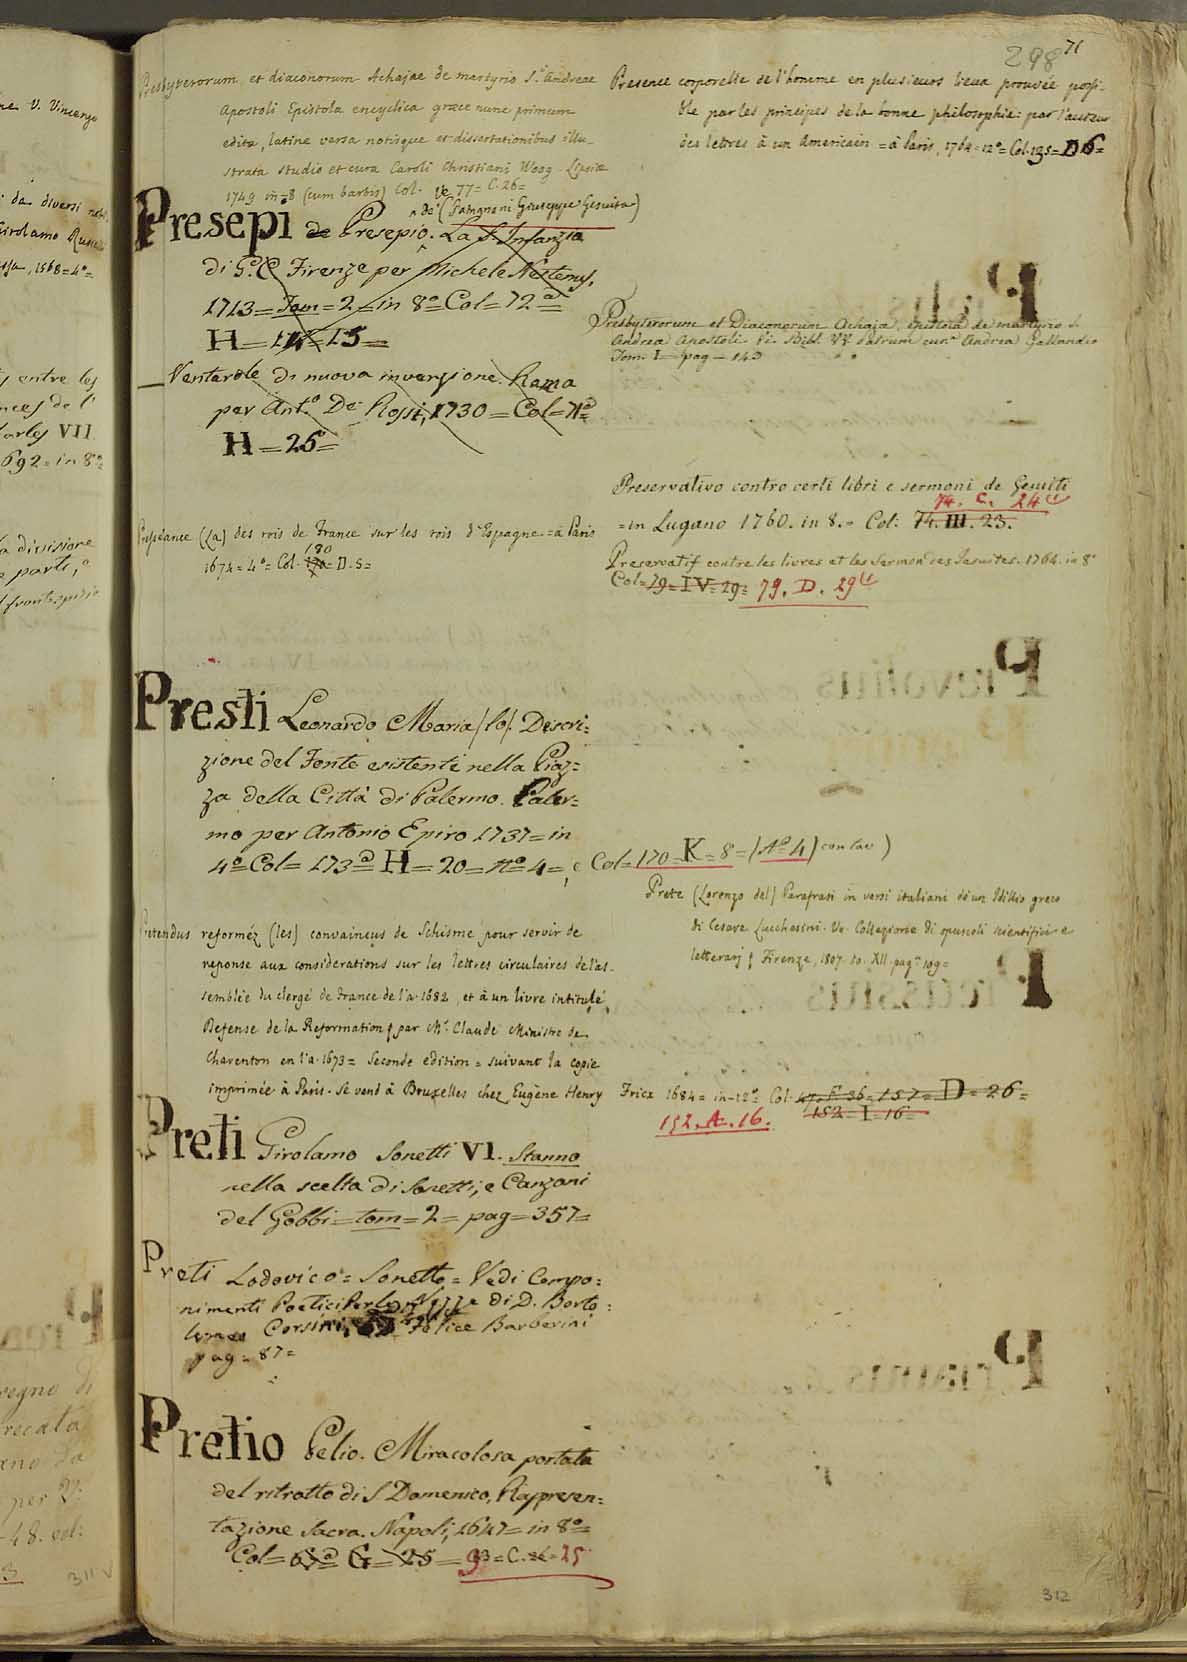 298 71
Presbyterorum et diaconorum Achajae de martyrio S. Andreae
Apostoli Epistola encyclica graece nunc primum
edita, latine versa notisque et dissertationibus illu-
strata studio et cura Caroli Christiani Woog Lipsiae
1749 in-8 (cum barbis) Col. 77 = C. 26 =
Presepi de Presepio. La S. Infanzia
de' (Patrignani Giuseppe Gesuita)
di G. C. Firenze per Michele Nestenus,
1713 = Tom = 2 = in 8º Col = 72
H = 15 =
Ventarole di nuova invenzione. Roma
per Antº De Rossi, 1730 = Col = 71
H = 26 =
Preséance (La) des rois de France sur les rois d'Espagne = à Paris
1674 = 4º = Col. 180 = D. 5 =
Presti Leonardo Maria (lo). Descri:
zione del Fonte esistente nella Piaz=
za della Città di Palermo. Paler=
mo per Antonio Epiro 1737 = in
4º Col = 173 H = 20 = nº 4 = e Col = 170 = K = 8 = (Nº 4) con tav)
Pretendus reforméz (les) convaincus de Schisme pour servir de
reponse aux considerations sur les lettres circulaires de l'as-
semblée du clergé de France de l'a. 1682, et à un livre intitulé
Defense de la Reformation par Mr. Claude Ministre de
Charenton en l'a. 1673 = Seconde edition = suivant la copie
imprimée à Paris. Se vend à Bruxelles chez Eugène Henry Fricx 1684 = in-12º = Col. 157 = D = 26 =
152 = I = 16 =
152. A. 16.
Preti Girolamo Sonetti VI. Stanno
nella scelta di Sonetti, e Canzoni
del Gobbi = tom = 2 = pag = 357 =
Preti Lodovico = Sonetto = Vedi Compo:
nimenti Poetici Per le Nozze di D. Borto:
lomeo Corsini, Felice Barberini
pag = 87 =
Pretio Pelio. Miracolosa portata
del ritratto di S. Domenico, Rappresen:
tazione Sacra. Napoli, 1647 = in 8º =
Col = G = 25 = 93 = C. 25
Presence corporelle de l'homme en plusieurs lieux prouvée possi-
ble par les principes de la bonne philosophie: par l'auteur
des lettres à un Americain = à Paris, 1764 = 12º = Col. 135 = D 6 =
Presbyterorum et Diaconorum Achaja, epistola de martyrio S.
Andrea Apostoli. Bibl. VV. Patrum cura Andrea Gallandio
Tom. I = pag = 143
Preservativo contro certi libri e sermoni de Gesuiti
74. C. 24
= in Lugano 1760. in 8. = Col: 74. III. 23.
Preservatif contre les livres et les Sermon des Jesuites. 1764. in 8º
Col = 79 = IV = 29 = 79. D. 29
Prete (Lorenzo del) Parafrasi in versi italiani di un Idillio greco
di Cesare Lucchesini. Ve. Collezione di opuscoli scientifici e
letterarj Firenze, 1807. to. XII. pag. 109 =
312
ne V. Vincenzo
da diversi
Girolamo
1568 = 4º =
entre les
de l'
Charles VII
1692 = in 8º
divisione
parti,
frontespizio
regno di
recata
per
48. vol:
3
311 v